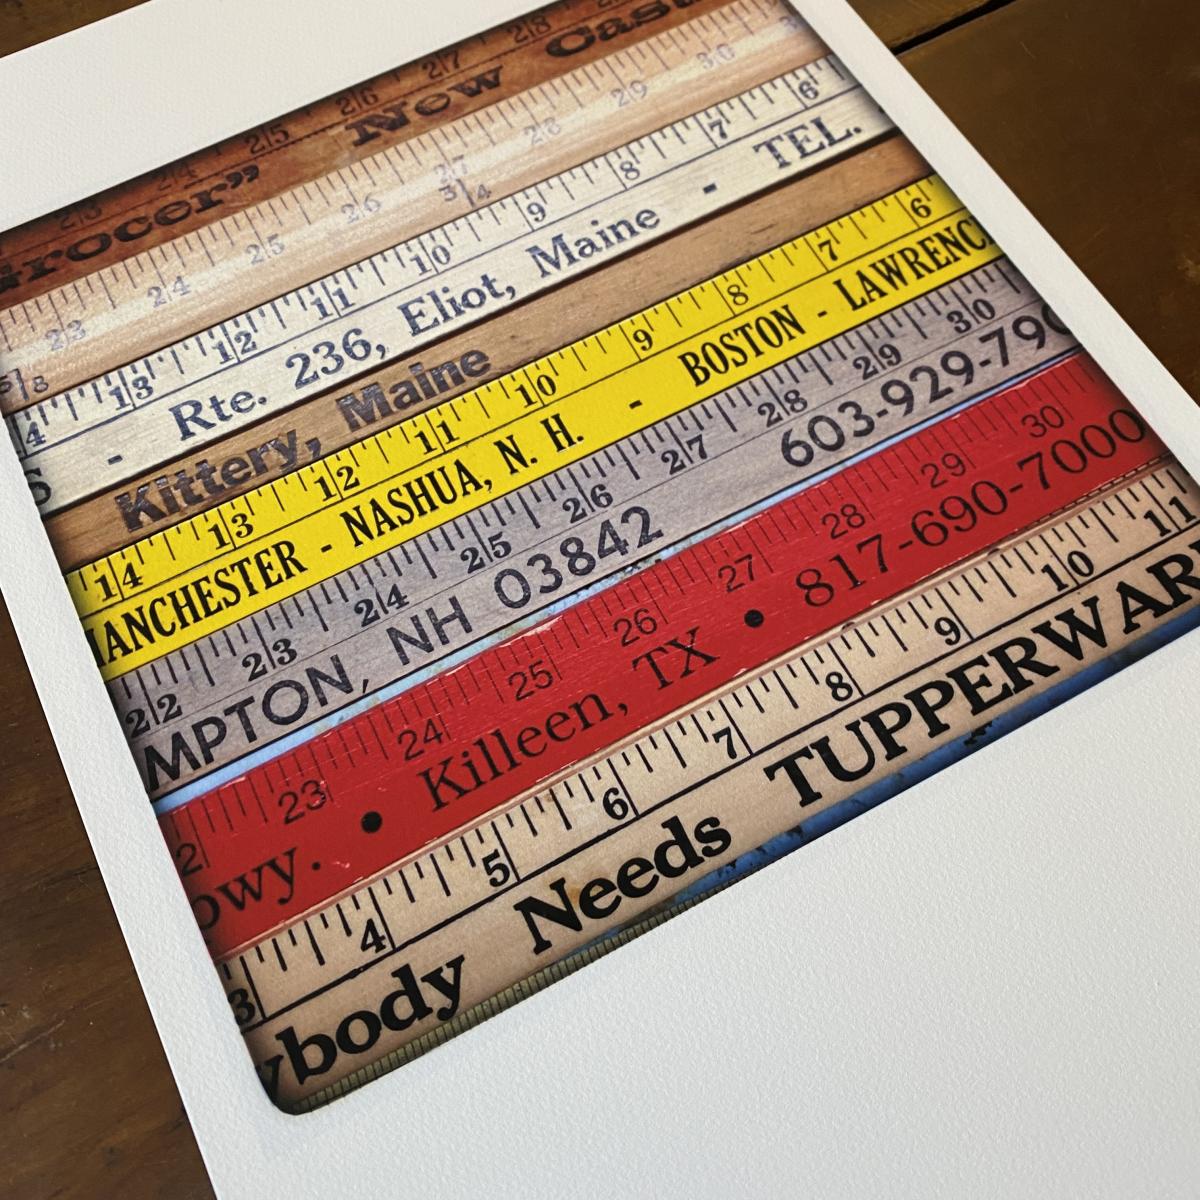 23 24 25 26 27 28
Grocer” New Cast
23 24 25 26 27 28 29 30
3/4
5/8
14 13 12 11 10 9 8 7 6
S - Rte. 236, Eliot, Maine - TEL.
Kittery, Maine
14 13 12 11 10 9 8 7 6
MANCHESTER - NASHUA, N. H. - BOSTON - LAWRENC
22 23 24 25 26 27 28 29 30
MPTON, NH 03842 603-929-790
22 23 24 25 26 27 28 29 30
owy. • Killeen, TX • 817-690-7000
3 4 5 6 7 8 9 10 11
ybody Needs TUPPERWAR